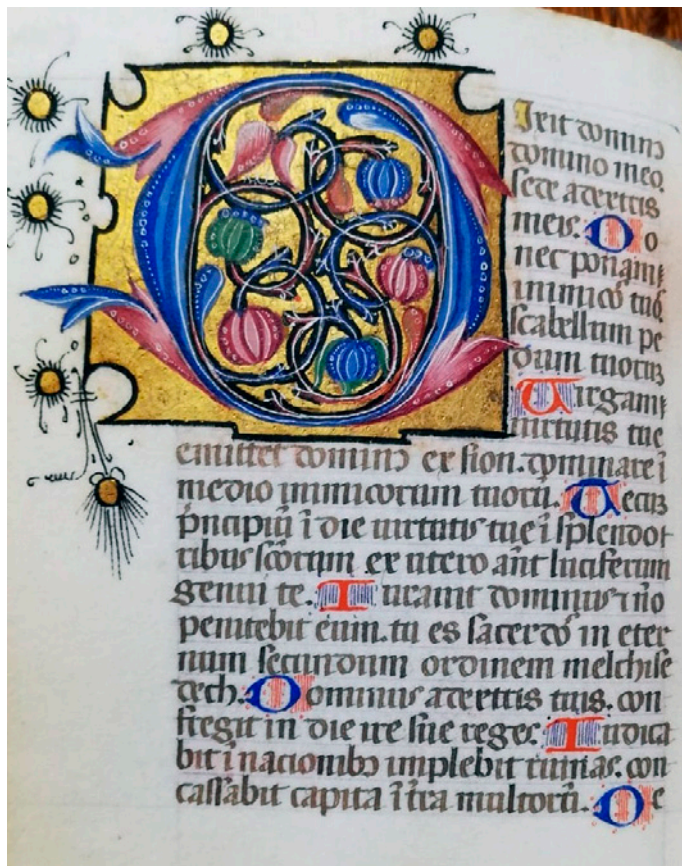 Dixit dominus
domino meo.
sede a dextris
meis. Do
nec ponam
inimicos tuos
scabellum pe
dum tuorum
Virgam
virtutis tue
emittet dominus ex sion. dominare i
medio inimicorum tuorū. Tecum
principiū ī die virtutis tue ī splendor
ribus scōrum ex utero añt luciferum
genui te. Iuravit dominus ⁊ nō
penitebit eum. tu es sacerdos in eter
num secundum ordinem melchise
dech. Dominus a dextris tuis. con
fregit in die ire sue reges. Iudica
bit ī nacionibꝫ implebit ruinas. con
cassabit capita ī t̄ra multorū. De